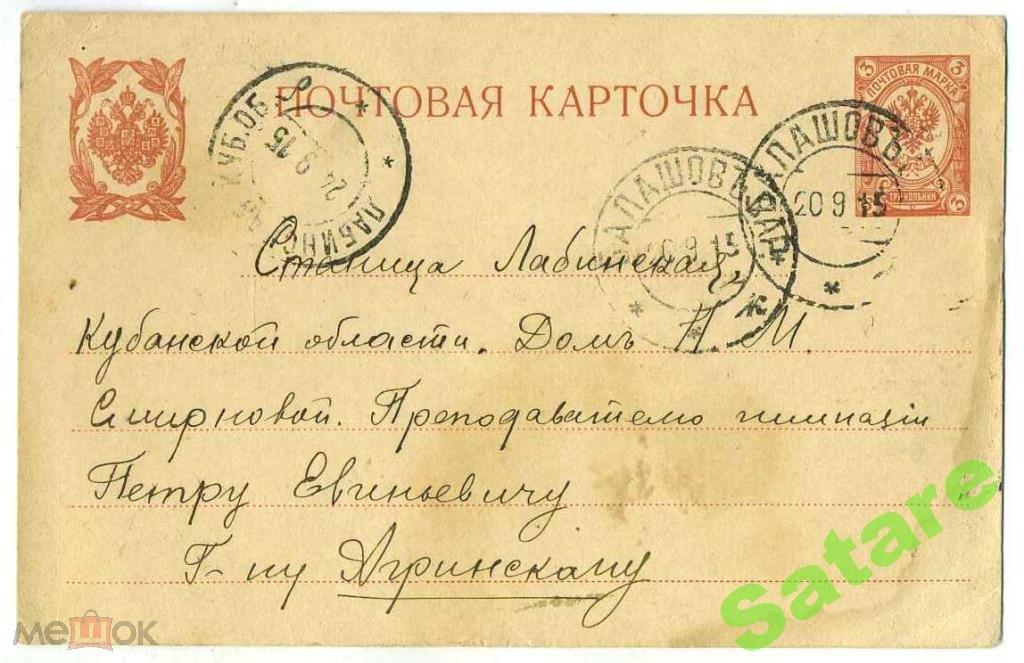 ПОЧТОВАЯ КАРТОЧКА
3 3
ПОЧТОВАЯ МАРКА
ТРИ КОПѢЙКИ
3 3
ЛАБИНС КУБ.ОБ.
24 9 15
БАЛАШОВЪ САР.
20 9 15
БАЛАШОВЪ
20 9 15
Станица Лабинская,
Кубанской области. Домъ Н. М.
Смирновой. Преподавателю гимназіи
Петру Евгиньевичу
Г-ну Агринскому
Satare
мешок